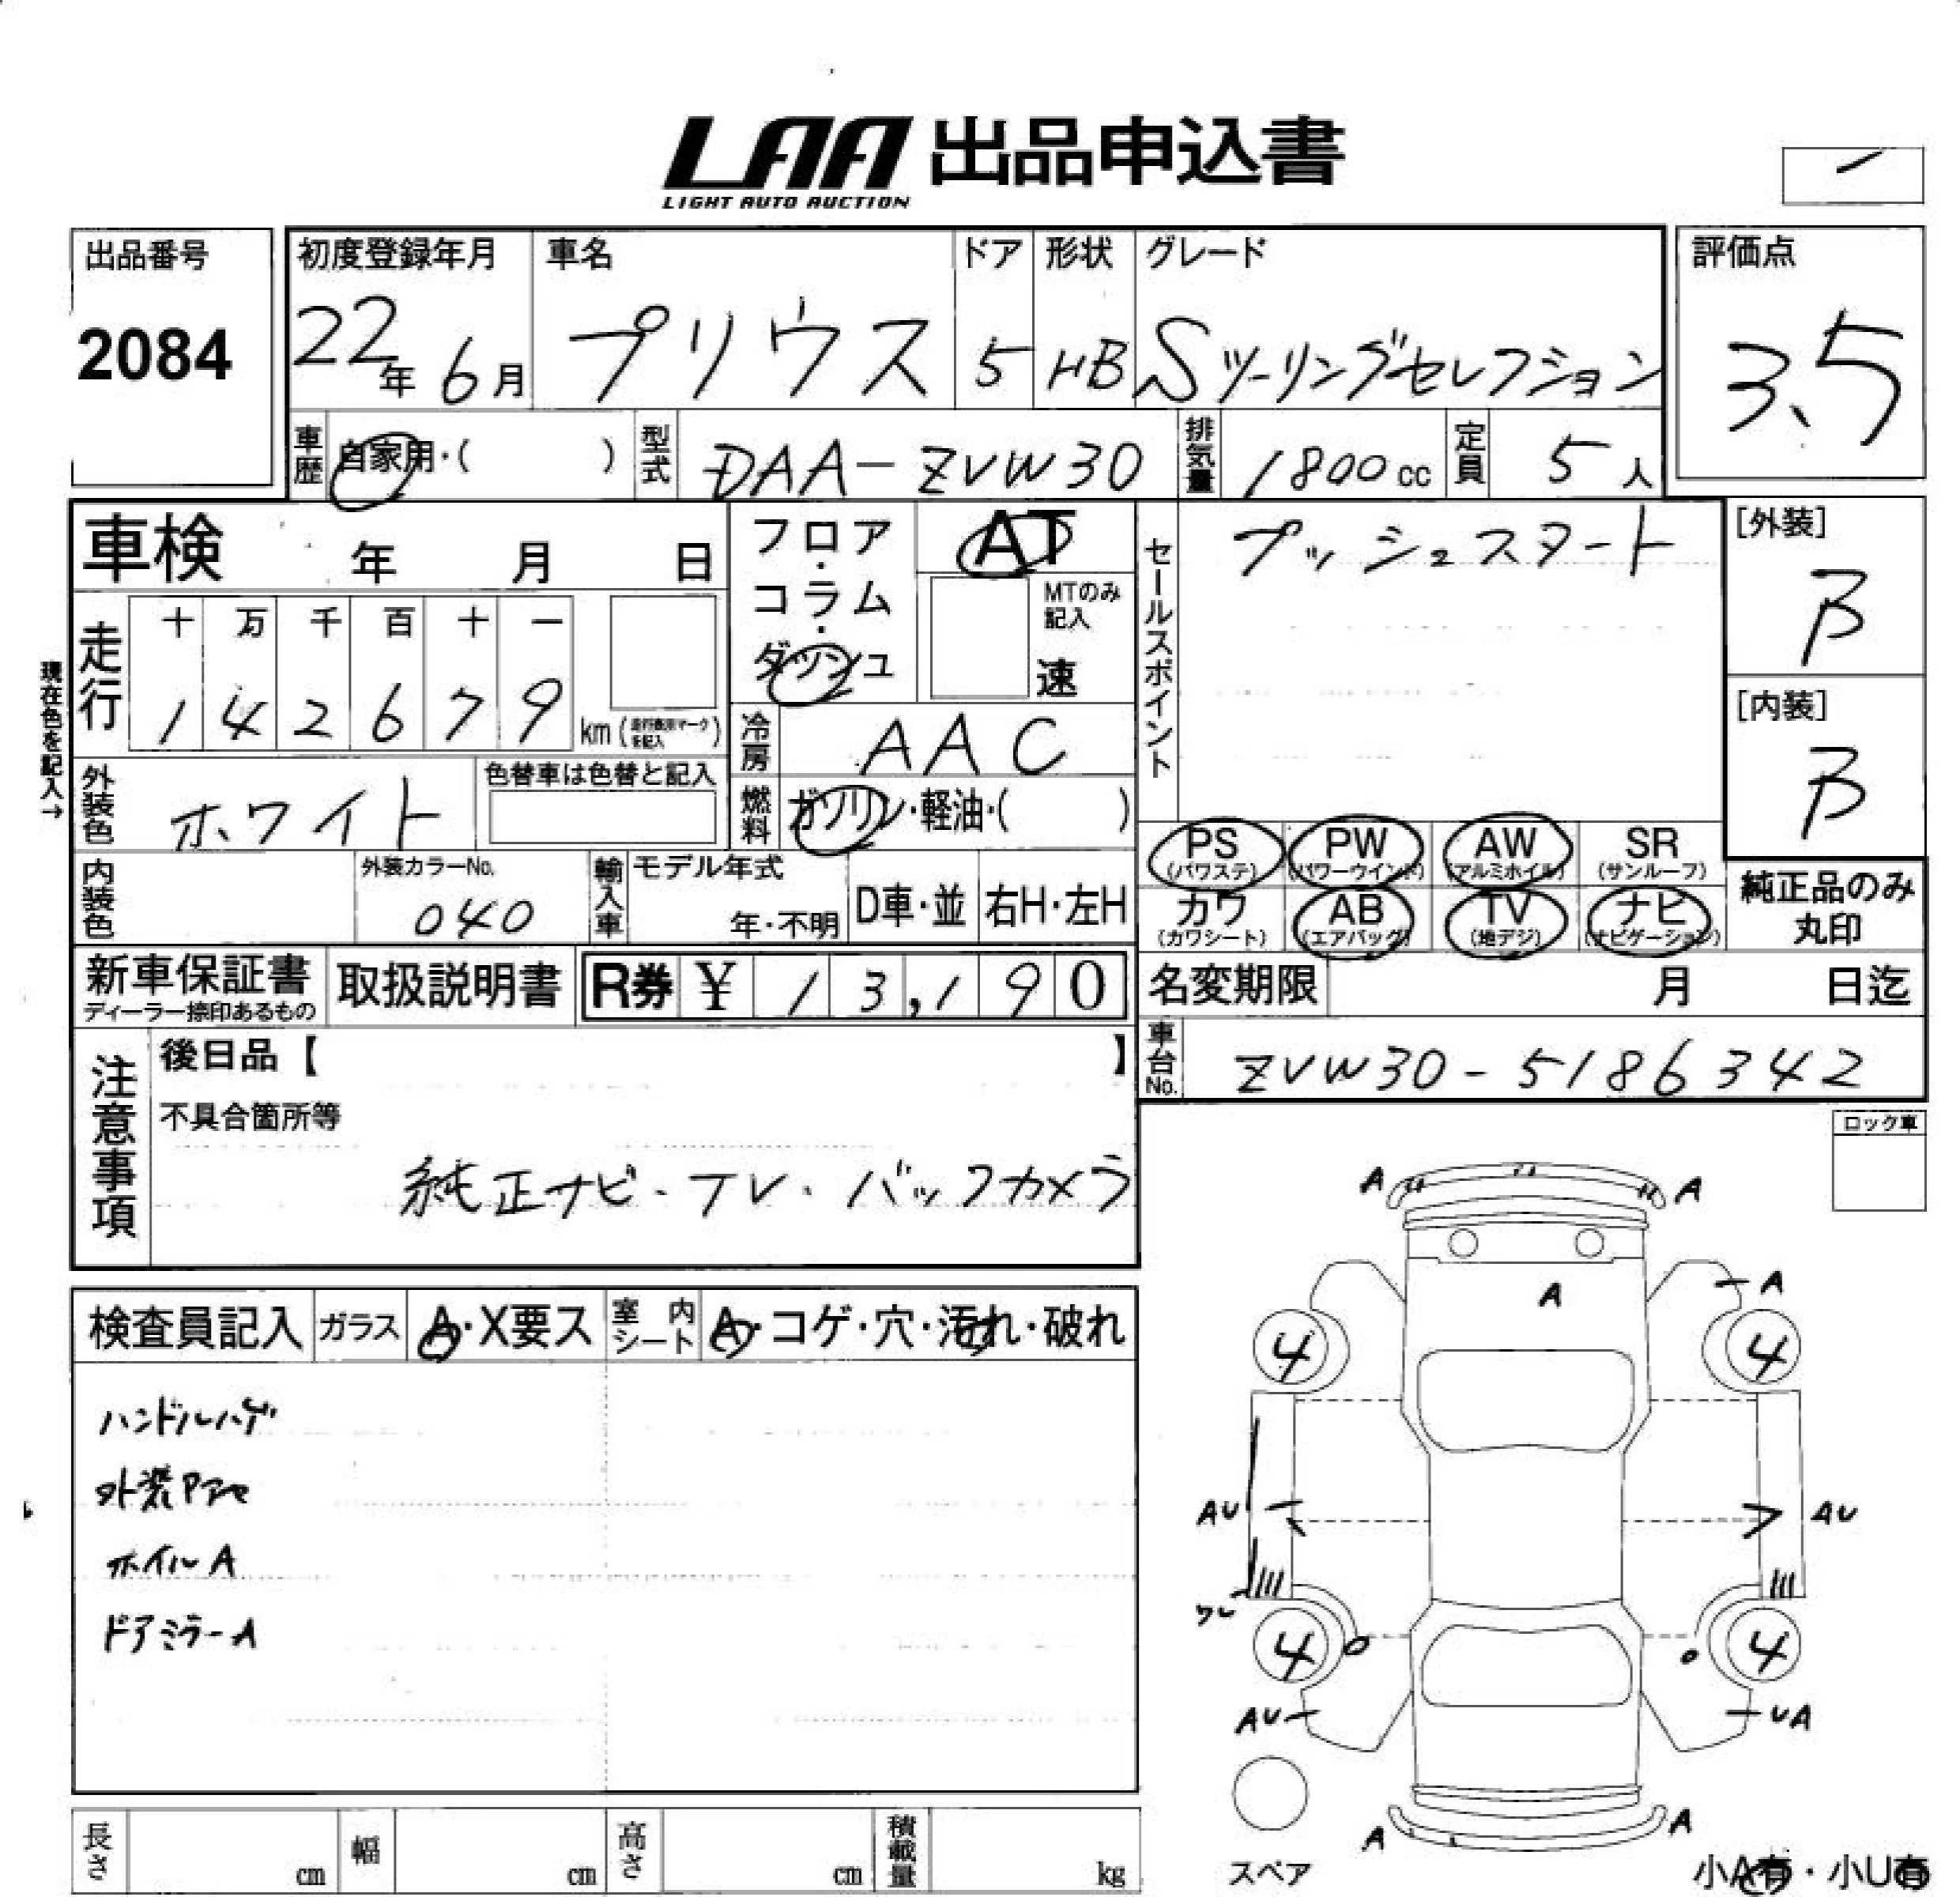 LAA 出品申込書
LIGHT AUTO AUCTION
出品番号
2084
初度登録年月
22年 6月
車名
プリウス
ドア
5
形状
HB
グレード
Sツーリングセレクション
評価点
3.5
車歴 自家用・( )
型式 DAA-ZVW30
排気量 1800cc
定員 5人
車検 年 月 日
フロア・コラム・ダッシュ
AT
MTのみ記入
速
セールスポイント
プッシュスタート
[外装]
B
[内装]
B
現在色を記入→
走行
十 万 千 百 十 一
1 4 2 6 7 9
km
冷房 AAC
外装色 ホワイト
色替車は色替と記入
燃料 ガソリン・軽油・( )
内装色
外装カラーNo.
040
輸入車
モデル年式
年・不明
D車・並
右H・左H
PS
(パワステ)
PW
(パワーウインド)
AW
(アルミホイル)
SR
(サンルーフ)
カワ
(カワシート)
AB
(エアバッグ)
TV
(地デジ)
ナビ
(ナビゲーション)
純正品のみ
丸印
新車保証書
ディーラー捺印あるもの
取扱説明書
R券 ¥ 13,190
名変期限 月 日迄
車台No. ZVW30-5186342
注意事項
後日品【 】
不具合箇所等
純正ナビ・TV・バックカメラ
ロック車
検査員記入
ガラス A・X要ス
室内シート A・コゲ・穴・汚れ・破れ
ハンドルハゲ
外装Pアセ
ホイルA
ドアミラーA
A A
A A
4 4
AU AU
4 4
AU UA
A A
スペア
小A有・小U有
長さ cm
幅 cm
高さ cm
積載量 kg